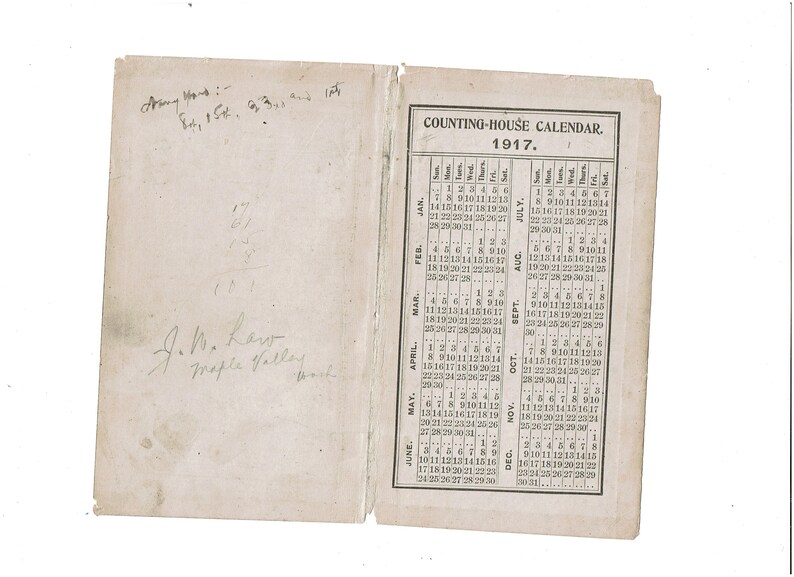 and 1st
17
61
15
8
101
J. W. Law
Maple Valley
Wash.
COUNTING-HOUSE CALENDAR.
1917.
Sun. Mon. Tues. Wed. Thurs. Fri. Sat.
JAN.
.. 1 2 3 4 5 6
7 8 9 10 11 12 13
14 15 16 17 18 19 20
21 22 23 24 25 26 27
28 29 30 31 .. .. ..
FEB.
.. .. .. .. 1 2 3
4 5 6 7 8 9 10
11 12 13 14 15 16 17
18 19 20 21 22 23 24
25 26 27 28 .. .. ..
MAR.
.. .. .. .. 1 2 3
4 5 6 7 8 9 10
11 12 13 14 15 16 17
18 19 20 21 22 23 24
25 26 27 28 29 30 31
APRIL.
1 2 3 4 5 6 7
8 9 10 11 12 13 14
15 16 17 18 19 20 21
22 23 24 25 26 27 28
29 30 .. .. .. .. ..
MAY.
.. .. 1 2 3 4 5
6 7 8 9 10 11 12
13 14 15 16 17 18 19
20 21 22 23 24 25 26
27 28 29 30 31 .. ..
JUNE.
.. .. .. .. .. 1 2
3 4 5 6 7 8 9
10 11 12 13 14 15 16
17 18 19 20 21 22 23
24 25 26 27 28 29 30
Sun. Mon. Tues. Wed. Thurs. Fri. Sat.
JULY.
1 2 3 4 5 6 7
8 9 10 11 12 13 14
15 16 17 18 19 20 21
22 23 24 25 26 27 28
29 30 31 .. .. .. ..
AUG.
.. .. .. 1 2 3 4
5 6 7 8 9 10 11
12 13 14 15 16 17 18
19 20 21 22 23 24 25
26 27 28 29 30 31 ..
SEPT.
.. .. .. .. .. .. 1
2 3 4 5 6 7 8
9 10 11 12 13 14 15
16 17 18 19 20 21 22
23 24 25 26 27 28 29
30 .. .. .. .. .. ..
OCT.
.. 1 2 3 4 5 6
7 8 9 10 11 12 13
14 15 16 17 18 19 20
21 22 23 24 25 26 27
28 29 30 31 .. .. ..
NOV.
.. .. .. .. 1 2 3
4 5 6 7 8 9 10
11 12 13 14 15 16 17
18 19 20 21 22 23 24
25 26 27 28 29 30 ..
DEC.
.. .. .. .. .. .. 1
2 3 4 5 6 7 8
9 10 11 12 13 14 15
16 17 18 19 20 21 22
23 24 25 26 27 28 29
30 31 .. .. .. .. ..